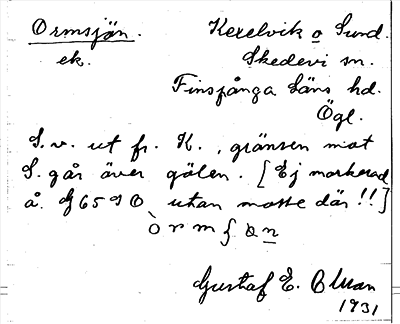 Ormsjön. Kexelvik o Sund.
ek. Skedevi sn.
Finspånga läns hd.
Ögl.
S.v. ut fr. K., gränsen mot
S. går över gölen. [Ej markerad
å. G 65 S O utan mosse där!!]
Gustaf E.
1931